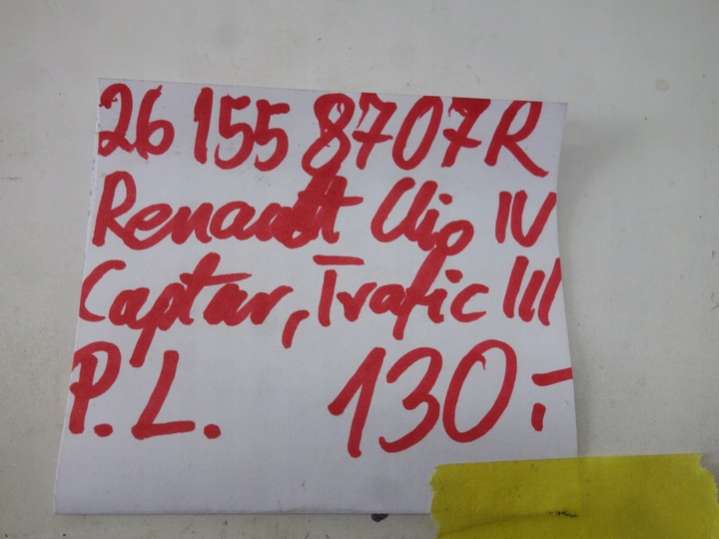 26 155 8707R
Renault Clio IV
Captur, Trafic III
P.L. 130.-